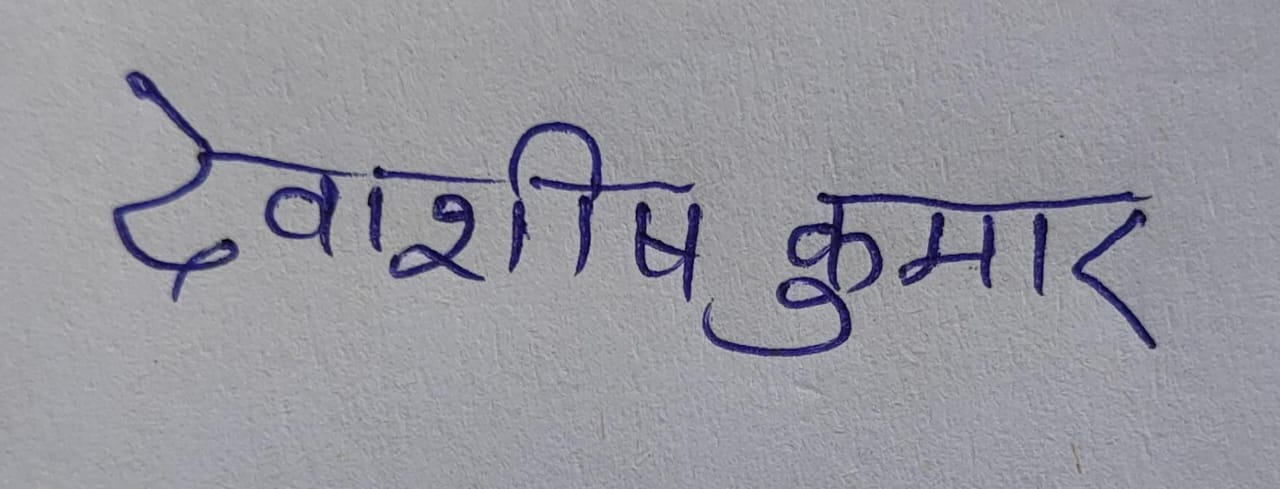 देवाशीष कुमार